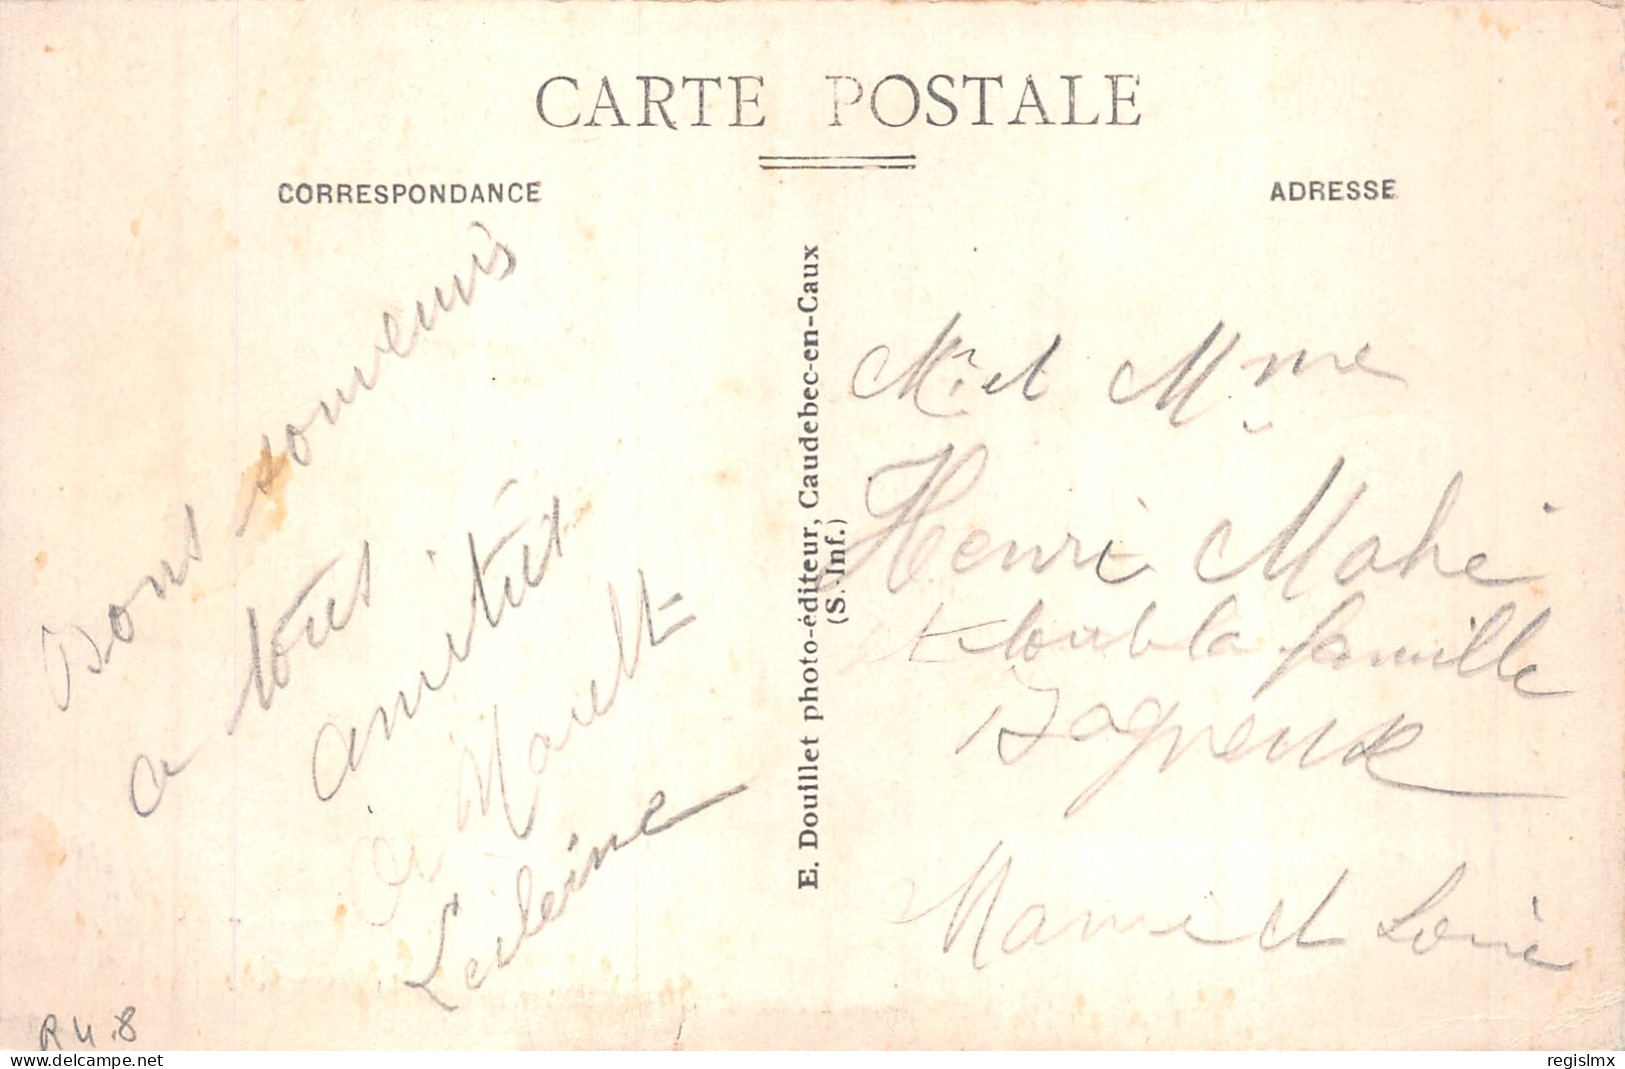 CARTE POSTALE
CORRESPONDANCE
ADRESSE
Bons souvenirs
a tous
amitiés
E. Douillet photo-éditeur, Caudebec-en-Caux
(S.-Inf.)
Mr et Mme
Henri Mahé
et toute la famille
Bagneux
Maine et Loire
R 4.8
delcampe.net
regislmx